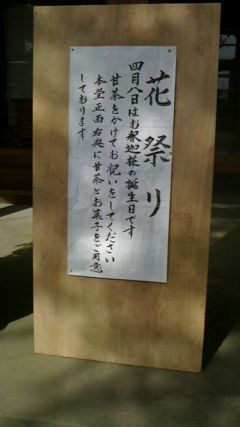 花祭り
四月八日はお釈迦様の誕生日です
甘茶をかけてお祝いをしてください
本堂正面右奥に甘茶とお菓子をご用意
しております